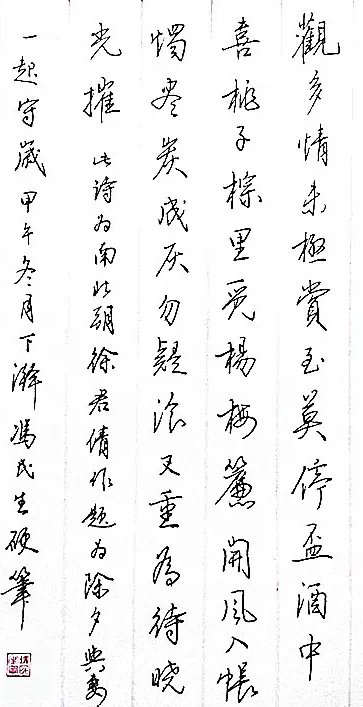 觀多情未極賞至莫停盃酒中
喜桃子粽里覓楊梅簾開風入帳
燭尽炭成灰勿疑飡又重為待晓
光摧 此诗為南北朝徐君倩作題為除夕與妻
一起守歲甲午冬月下澣馮民生硬筆